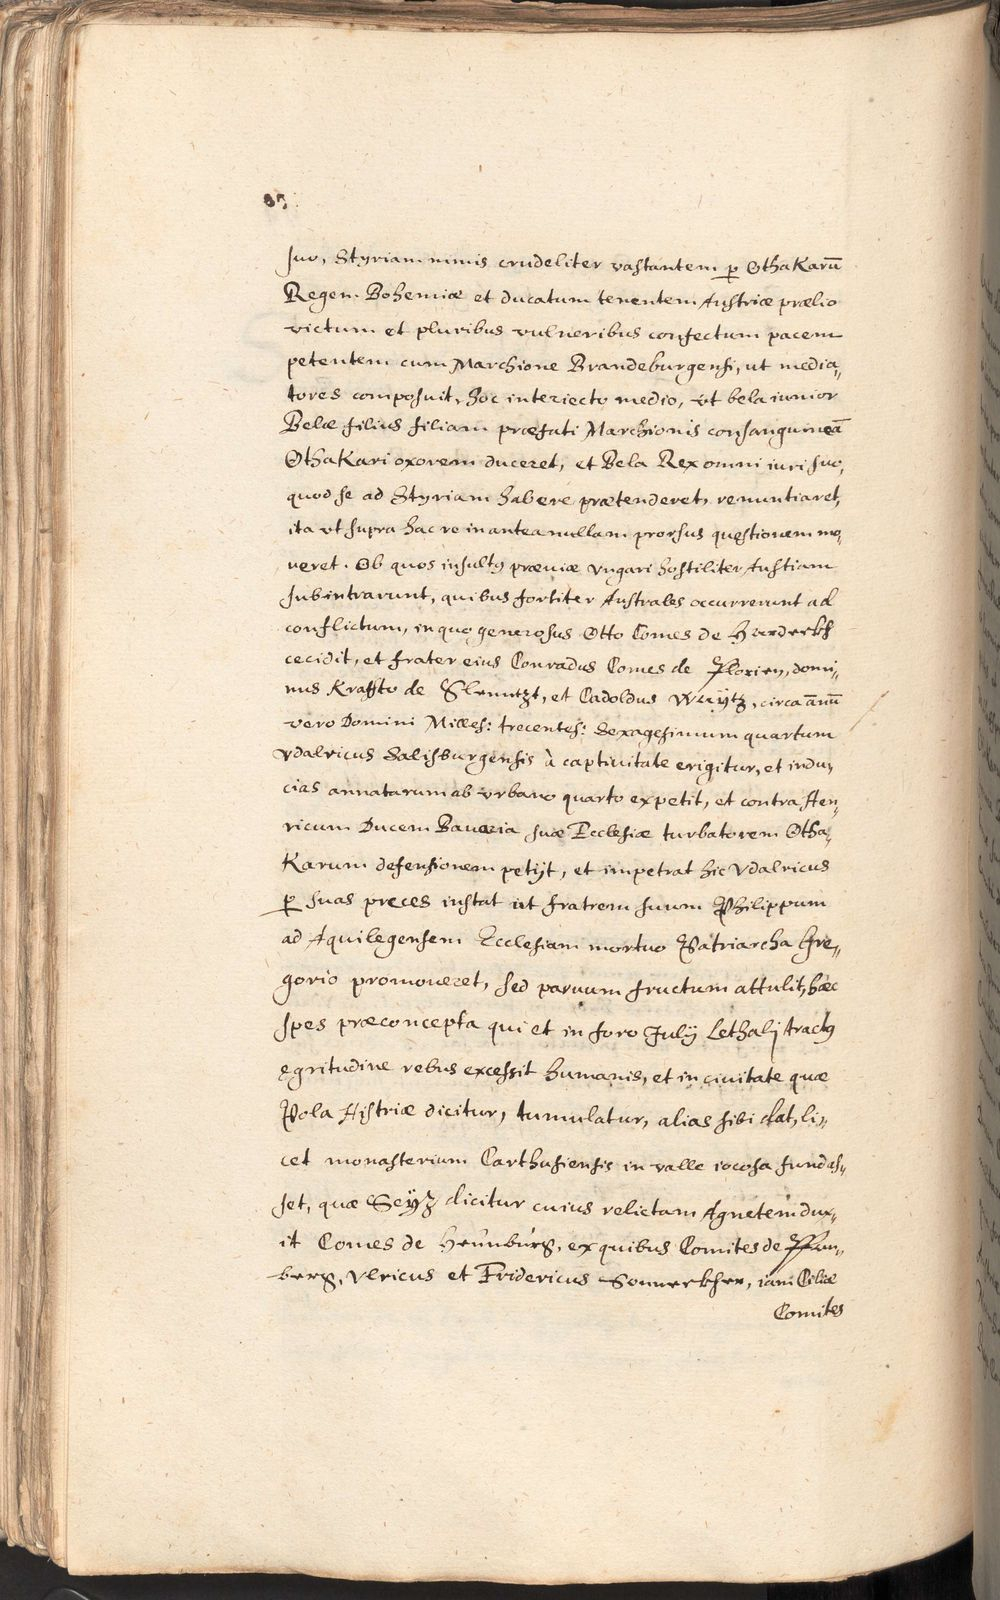 suo, Styriam nimis crudeliter vastantem p̱ Othakarū
Regem Bohemiæ et ducatum tenentem Austriæ prælio
victum et pluribus vulneribus confectum pacem
petentem cum Marchione Brandeburgensi, ut media„
tores composuit, hoc interiecto medio, vt bela iunior
Belæ filius filiam præfati Marchionis consanguineā
Othakari oxorem duceret, et Bela Rex omni iuri suo,
quod se ad Styriam habere prætenderet, renuntiaret,
ita vt supra hac re in antea nullam prorsus quęstionem mo„
ueret. Ob quos insultꝰ præuiæ vngari hostiliter Austiam
subintrarunt, quibus fortiter Australes occurrerunt ad
conflictum, in quo generosus Otto Comes de Hardekh
cecidit, et frater eius Conradus Comes de Plaien, domi„
nus Kraffto de Sleuntzt, et Cadoldus Wäÿtz, circa ānū
vero Domini Milles: trecentes: Sexagesimum quartum
vdalricus Salisburgensis à captiuitate erigitur, et indu„
cias annatarum ab vrbano quarto expetit, et contra Hen„
ricum Ducem Bauaria suæ Ecclesiæ turbatorem Otha„
Karum defensionem petÿt, et impetrat hic vdalricus
p̱ suas preces instat ut fratrem suum Philippum
ad Aquilegensem Ecclesiam mortuo Patriarcha Gre„
gorio promoueret, sed paruum fructum attulit, hæc
spes præconcepta qui et in foro Julÿ Lethalj tractꝰ
ęgritudine rebus excessit humanis, et in ciuitate quæ
Pola Histriæ dicitur, tumulatur, alias sibi dat, li„
cet monasterium Carthusiensis in valle iocosa fundas„
set, quæ Seÿz dicitur cuius relictam Agnetem dux„
it Comes de Heunburg, ex quibus Comites de Pfan„
berg, Vlricus et Fridericus Sounekher, iam Ciliæ
Comites